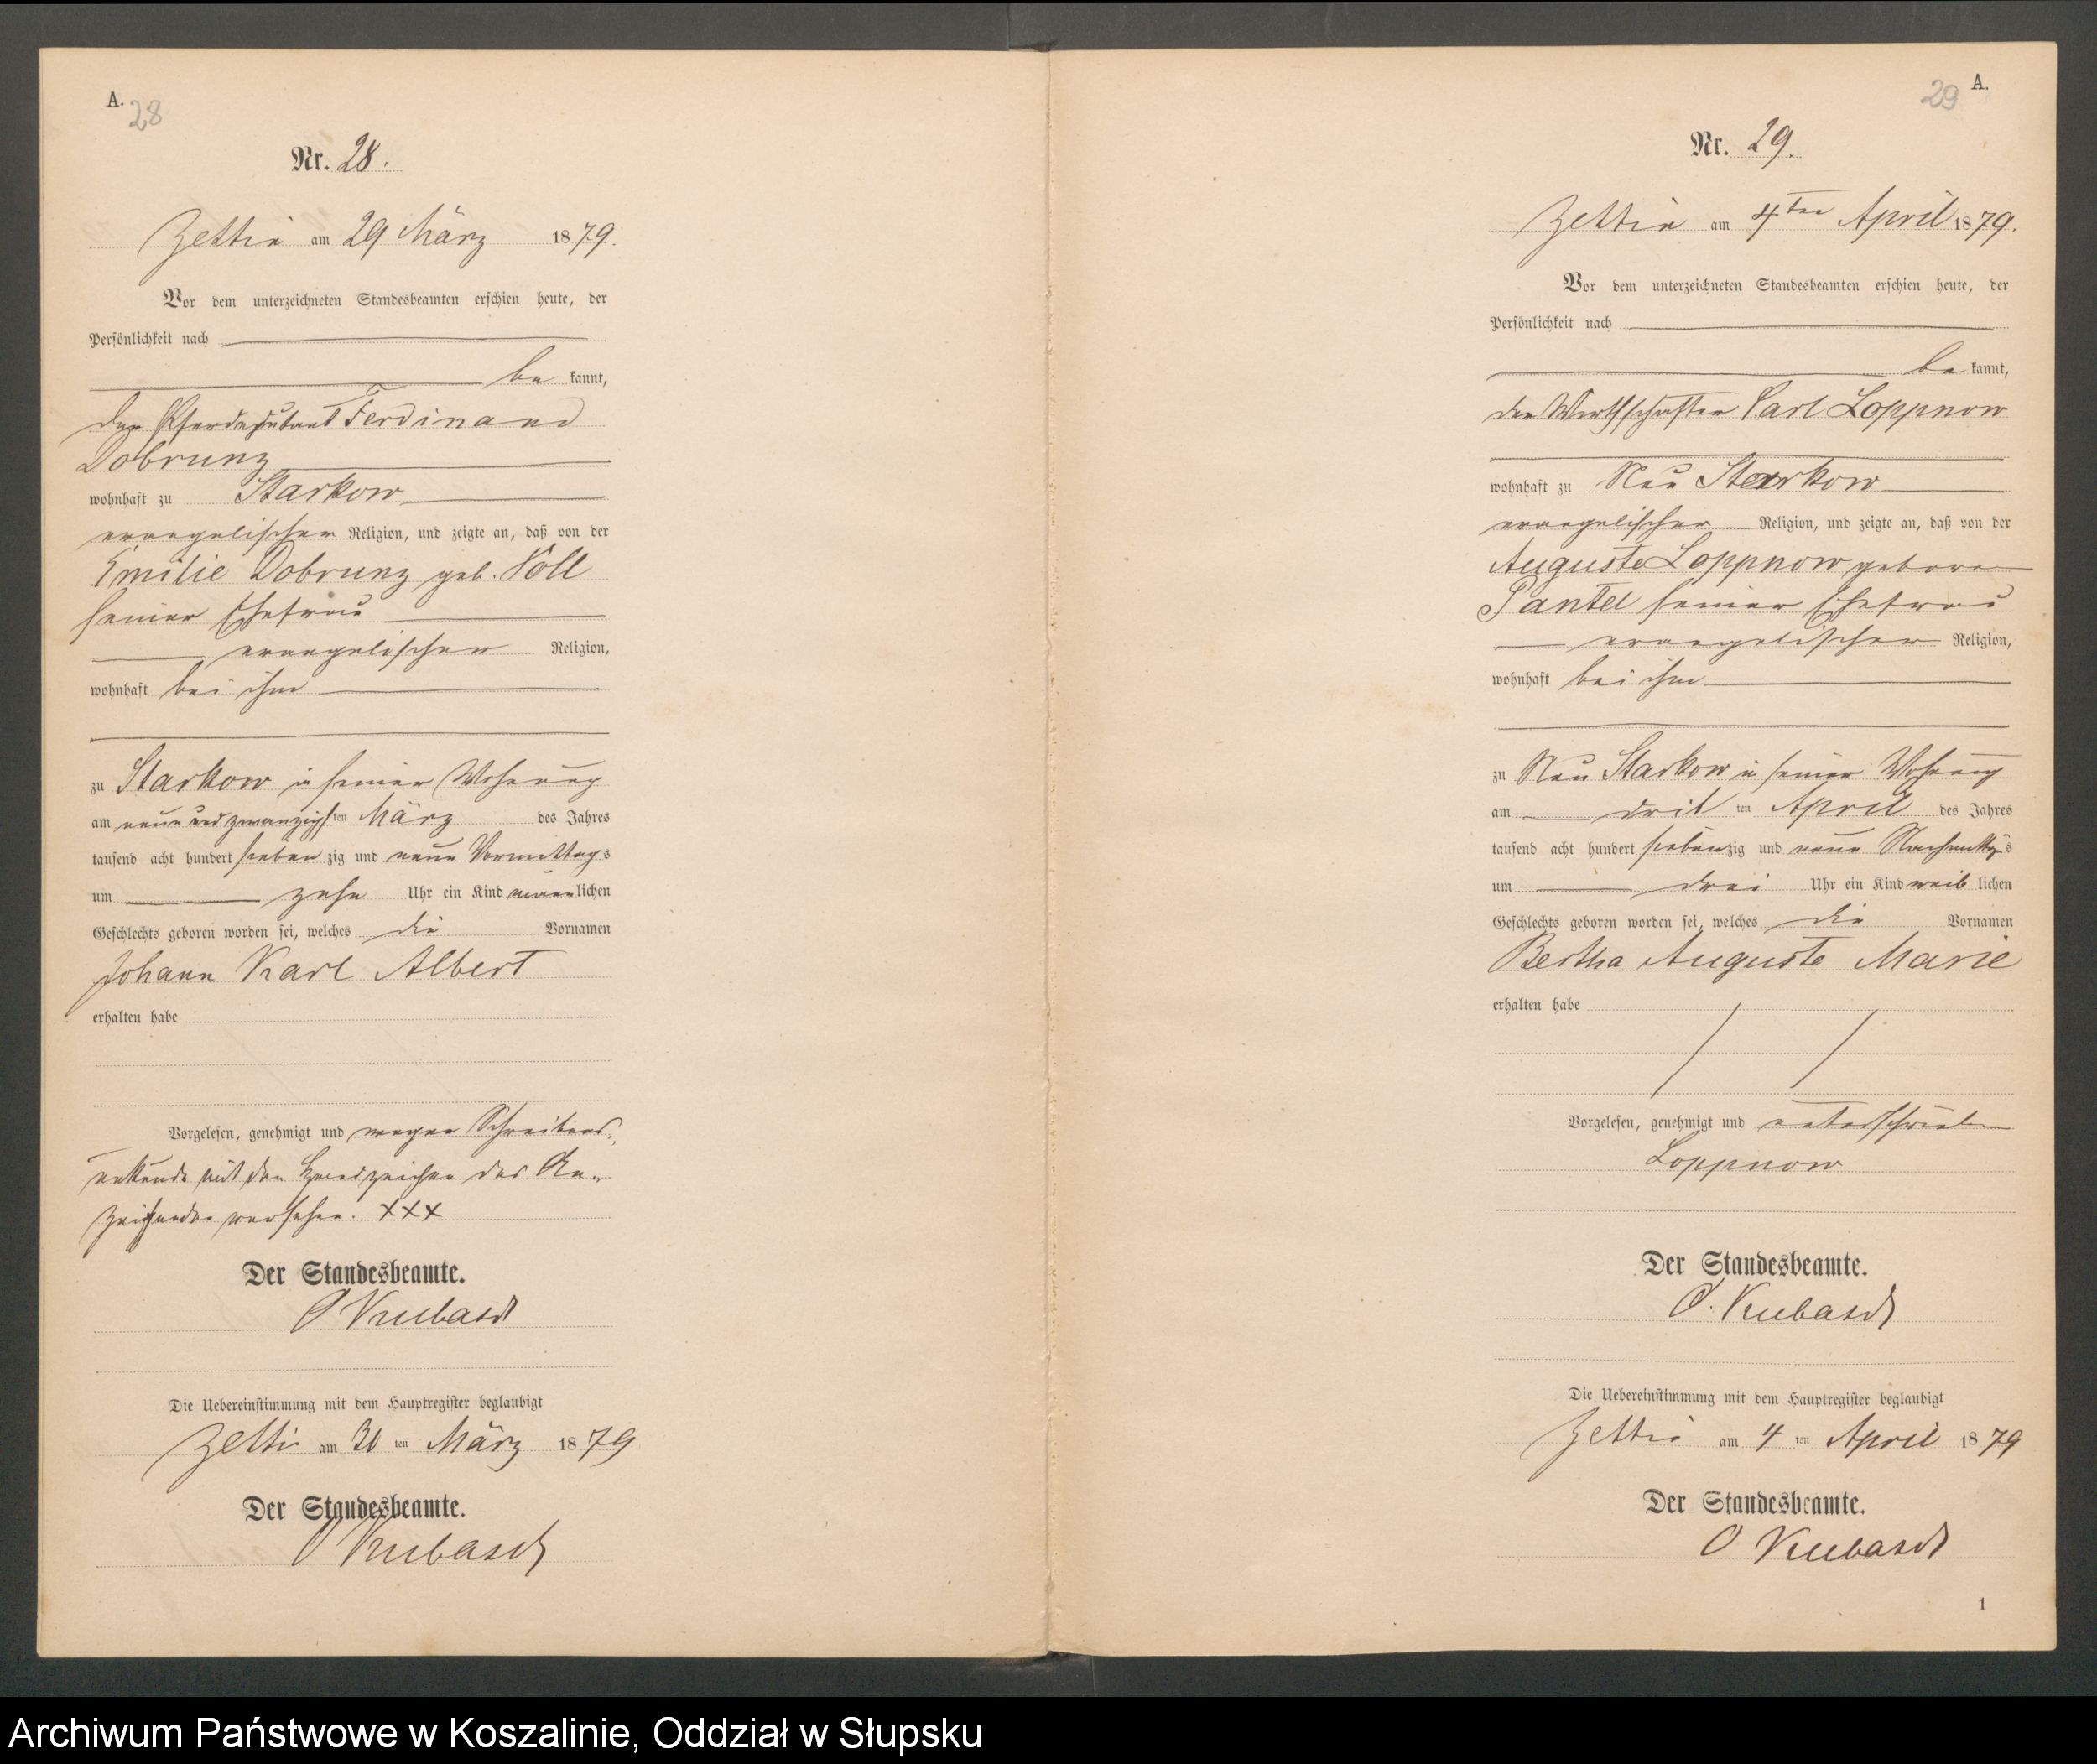 A.
28
Nr. 28.
Zettin am 29 März 1879.
Vor dem unterzeichneten Standesbeamten erschien heute, der
Persönlichkeit nach
be kannt,
der Ferdinand
Dobrunz
wohnhaft zu Starkow
evangelischer Religion, und zeigte an, daß von der
Emilie Dobrunz geb. Voll
seiner Ehefrau
evangelischer Religion,
wohnhaft bei ihm
zu Starkow in seiner Wohnung
am neun und zwanzigsten März des Jahres
tausend acht hundert sieben zig und neun Vormittags
um zehn Uhr ein Kind männlichen
Geschlechts geboren worden sei, welches die Vornamen
Johann Karl Albert
erhalten habe
Vorgelesen, genehmigt und wegen Schreibens-
unkunde mit dem Handzeichen des An-
zeigenden versehen. XXX
Der Standesbeamte.
O Kubasch
Die Uebereinstimmung mit dem Hauptregister beglaubigt
Zettin am ten März 1879
Der Standesbeamte.
O Kubasch
29 A.
Nr. 29.
Zettin am 4ten April 1879.
Vor dem unterzeichneten Standesbeamten erschien heute, der
Persönlichkeit nach
be kannt,
der Wirthschafter Carl Loppnow
wohnhaft zu Neu Starkow
evangelischer Religion, und zeigte an, daß von der
Auguste Loppnow geborne
Pantel seiner Ehefrau
evangelischer Religion,
wohnhaft bei ihm
zu Neu Starkow in seiner Wohnung
am drit ten April des Jahres
tausend acht hundert siebenzig und neun Nachmittags
um drei Uhr ein Kind weib lichen
Geschlechts geboren worden sei, welches die Vornamen
Bertha Auguste Marie
erhalten habe
Vorgelesen, genehmigt und unterschrieben
Loppnow
Der Standesbeamte.
O. Kubasch
Die Uebereinstimmung mit dem Hauptregister beglaubigt
Zettin am 4 ten April 1879
Der Standesbeamte.
O Kubasch
1
Archiwum Państwowe w Koszalinie, Oddział w Słupsku